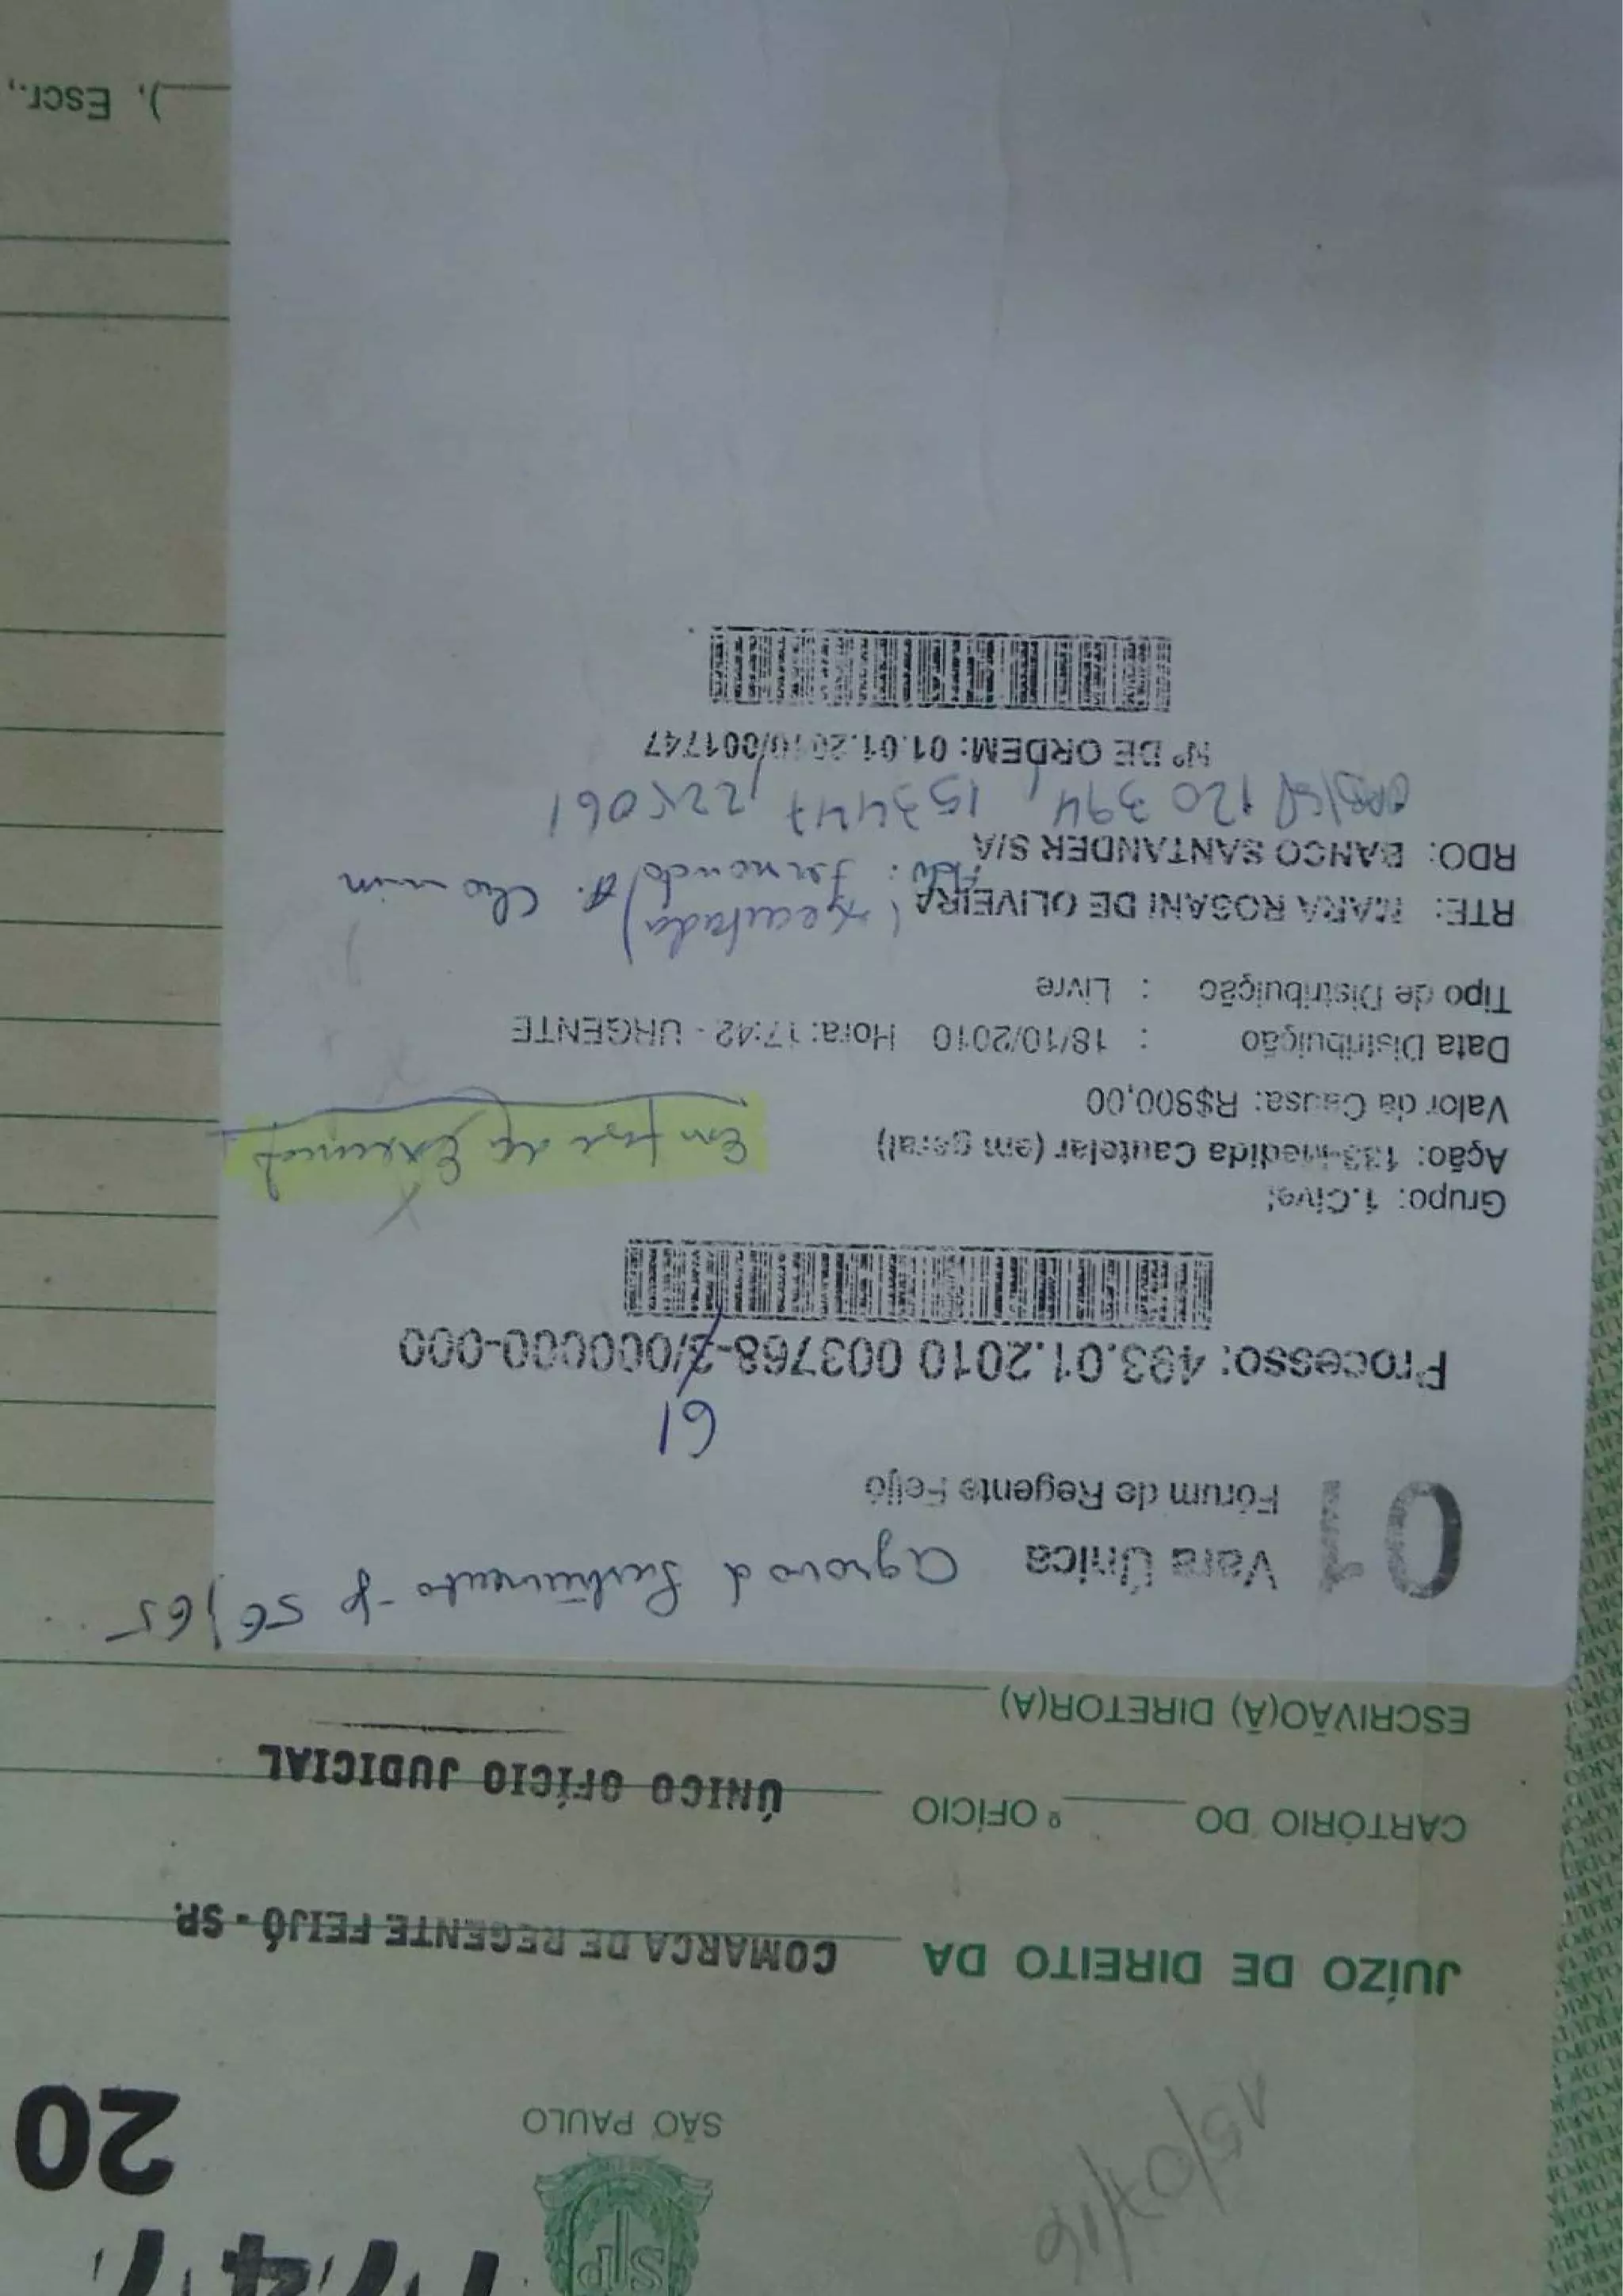 1747
20
SÃO PAULO
15/07/16
JUÍZO DE DIREITO DA COMARCA DE REGENTE FEIJÓ - SP.
CARTÓRIO DO º OFÍCIO ÚNICO OFÍCIO JUDICIAL
ESCRIVÃO(Ã) DIRETOR(A)
56/65
01 Vara Única
Fórum de Regente Feijó
61
Processo: 493.01.2010 003768-2/000000-000
Grupo: 1.Cível
Ação: 133-Medida Cautelar (em geral) Em fase de Execução
Valor da Causa: R$800,00
Data Distribuição : 18/10/2010 Hora: 17:42 - URGENTE
Tipo de Distribuição : Livre
RTE: MARA ROSANI DE OLIVEIRA (executada)
RDO: BANCO SANTANDER S/A Adv: Fernando A. Chamin
OAB/SP 120 394, 153447, 225061
Nº DE ORDEM: 01.01.2010/001747
). Escr.,